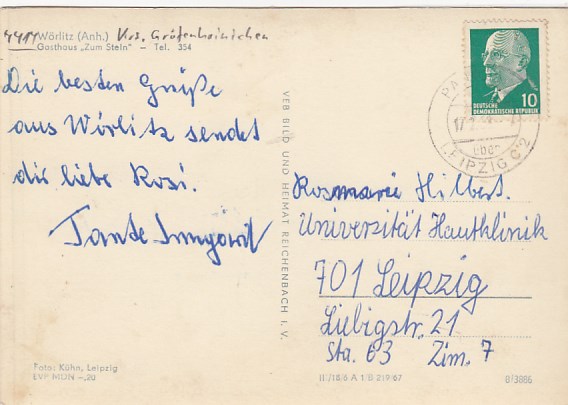 4414 Wörlitz (Anh.) Krs. Gräfenhainichen
Gasthaus „Zum Stein" – Tel. 354
Die besten Grüße
aus Wörlitz sendet
dir liebe Rosi.
Tante Irmgard
Foto: Kühn, Leipzig
EVP MDN –,20
VEB BILD UND HEIMAT REICHENBACH I. V.
DEUTSCHE
DEMOKRATISCHE REPUBLIK
10
über
LEIPZIG C 2
Rosmarie Hilbert.
Universität Hautklinik
701 Leipzig
Liebigstr. 21
Sta. 63 Zim. 7
III/18/6 A 1/B 219/67
8/3886